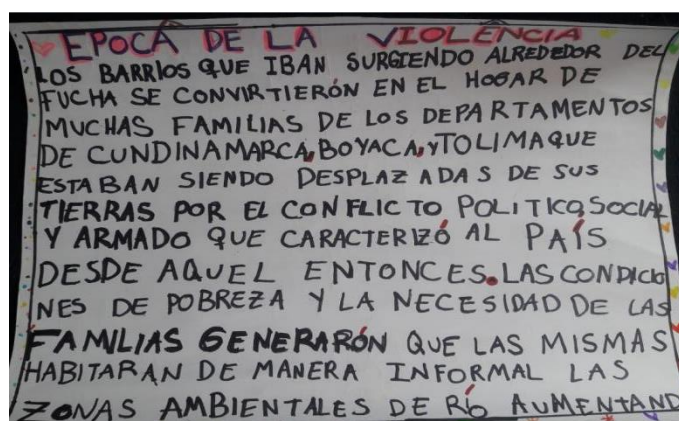 EPOCA DE LA VIOLENCIA
LOS BARRIOS QUE IBAN SURGIENDO ALREDEDOR DEL
FUCHA SE CONVIRTIERÓN EN EL HOGAR DE
MUCHAS FAMILIAS DE LOS DEPARTAMENTOS
DE CUNDINAMARCA, BOYACA, Y TOLIMA QUE
ESTABAN SIENDO DESPLAZADAS DE SUS
TIERRAS POR EL CONFLICTO POLITICO, SOCIAL
Y ARMADO QUE CARACTERIZÓ AL PAÍS
DESDE AQUEL ENTONCES. LAS CONDICIO
NES DE POBREZA Y LA NECESIDAD DE LAS
FAMILIAS GENERARÓN QUE LAS MISMAS
HABITARAN DE MANERA INFORMAL LAS
ZONAS AMBIENTALES DE RÍO AUMENTAND